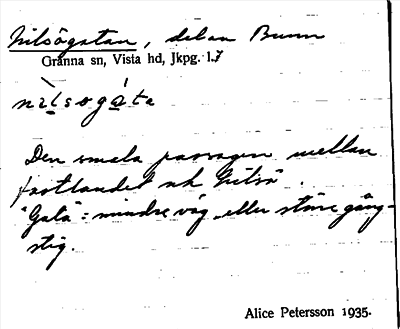 Nilsögatan, del av Bunn
Gränna sn, Vista hd, Jkpg. l.
nìlsogáta
Den smala passagen mellan
fastlandet och Nilsö.
"Gata" = mindre väg eller större gång-
stig.
Alice Petersson 1935.